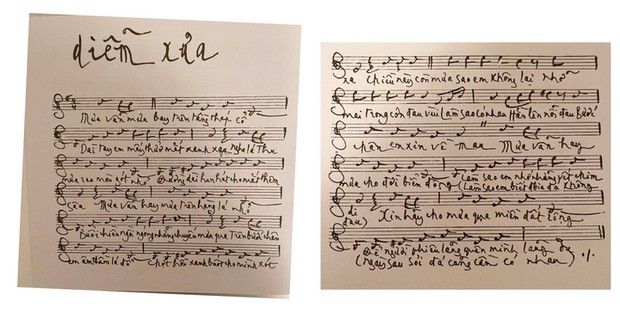 diễm xưa
Mưa vẫn mưa bay trên tầng tháp cổ
Dài tay em mấy thuở mắt xanh xao Nghe lá thu
mưa reo mòn gót nhỏ Đường dài hun hút cho mắt thêm
sâu Mưa vẫn hay mưa trên hàng lá nhỏ
Buổi chiều ngồi ngóng những chuyến mưa qua Trên bước chân
em âm thầm lá đổ Chợt hồn xanh buốt cho mình xót
xa Chiều này còn mưa sao em không lại Nhỡ
mai trong cơn đau vùi Làm sao có nhau Hằn lên nỗi đau Bước
chân em xin về mau Mưa vẫn hay
mưa cho đời biển động Làm sao em nhớ những vết chim
(Làm sao em biết bia đá không
di
đau) Xin hãy cho mưa qua miền đất rộng
Để người phiêu lãng quên mình lãng du
(Ngày sau sỏi đá cũng cần có nhau)